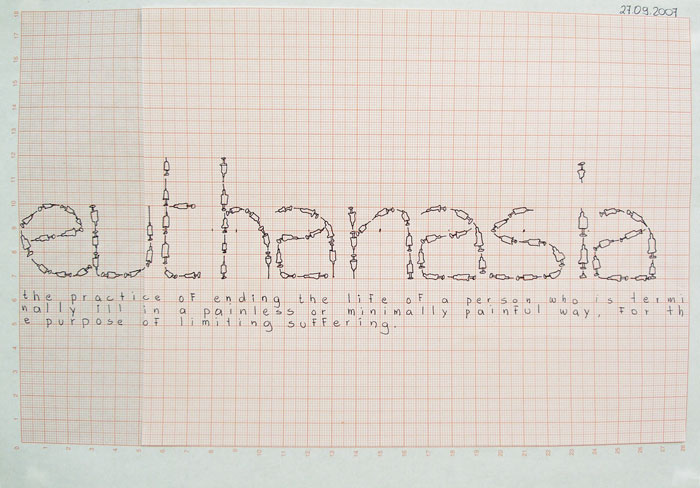 27.09.2007
euthanasia
the practice of ending the life of a person who is termi
nally ill in a painless or minimally painful way, for th
e purpose of limiting suffering.